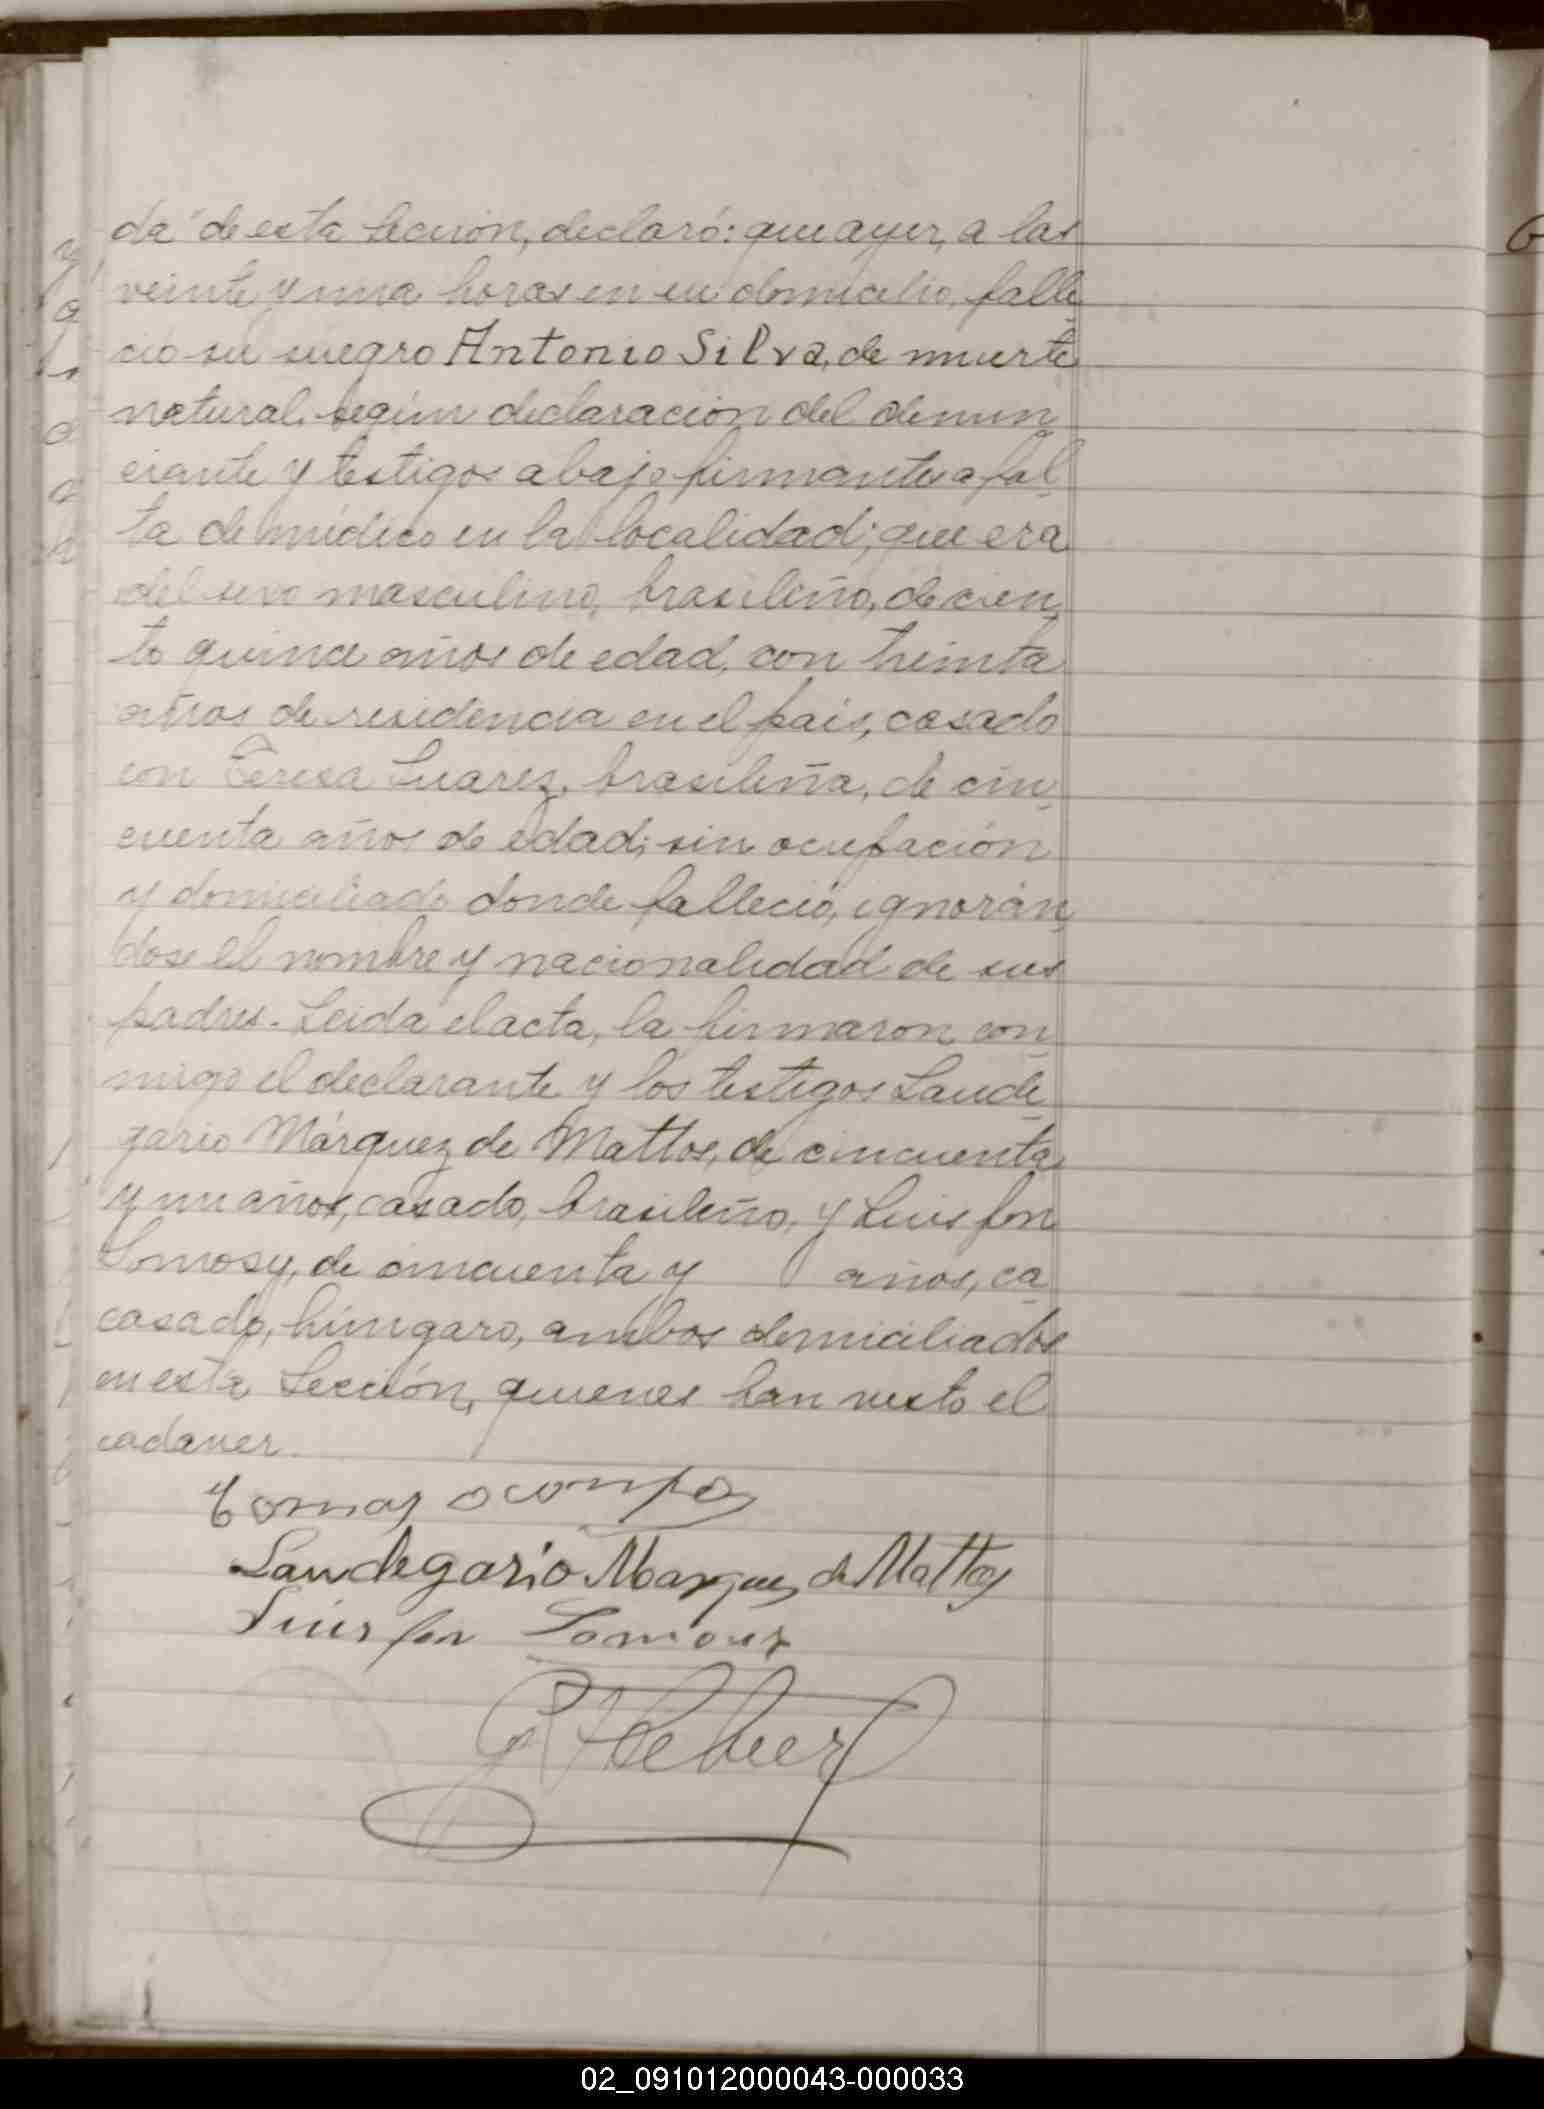 da" de esta Sección, declaró: que ayer, a las
veinte y una horas en su domicilio, falle-
ció su suegro Antonio Silva, de muerte
natural, según declaración del denun-
ciante y testigos abajo firmantes a fal-
ta de médico en la localidad; que era
del sexo masculino, brasileño, de cien-
to quince años de edad, con treinta
años de residencia en el país, casado
con Teresa Suarez, brasileña, de cin-
cuenta años de edad; sin ocupación
y domiciliado donde falleció, ignorán-
dose el nombre y nacionalidad de sus
padres. Leida el acta, la firmaron con-
migo el declarante y los testigos Laude-
gario Márquez de Mattos, de cincuenta
y un años, casado, brasileño, y Luis fon
Somosy, de cincuenta y años, ca-
casado, húngaro, ambos domiciliados
en esta Sección, quienes han visto el
cadaver.
Tomas Ocampo
Laudegario Marques de Mattos
Luis fon
02_091012000043-000033